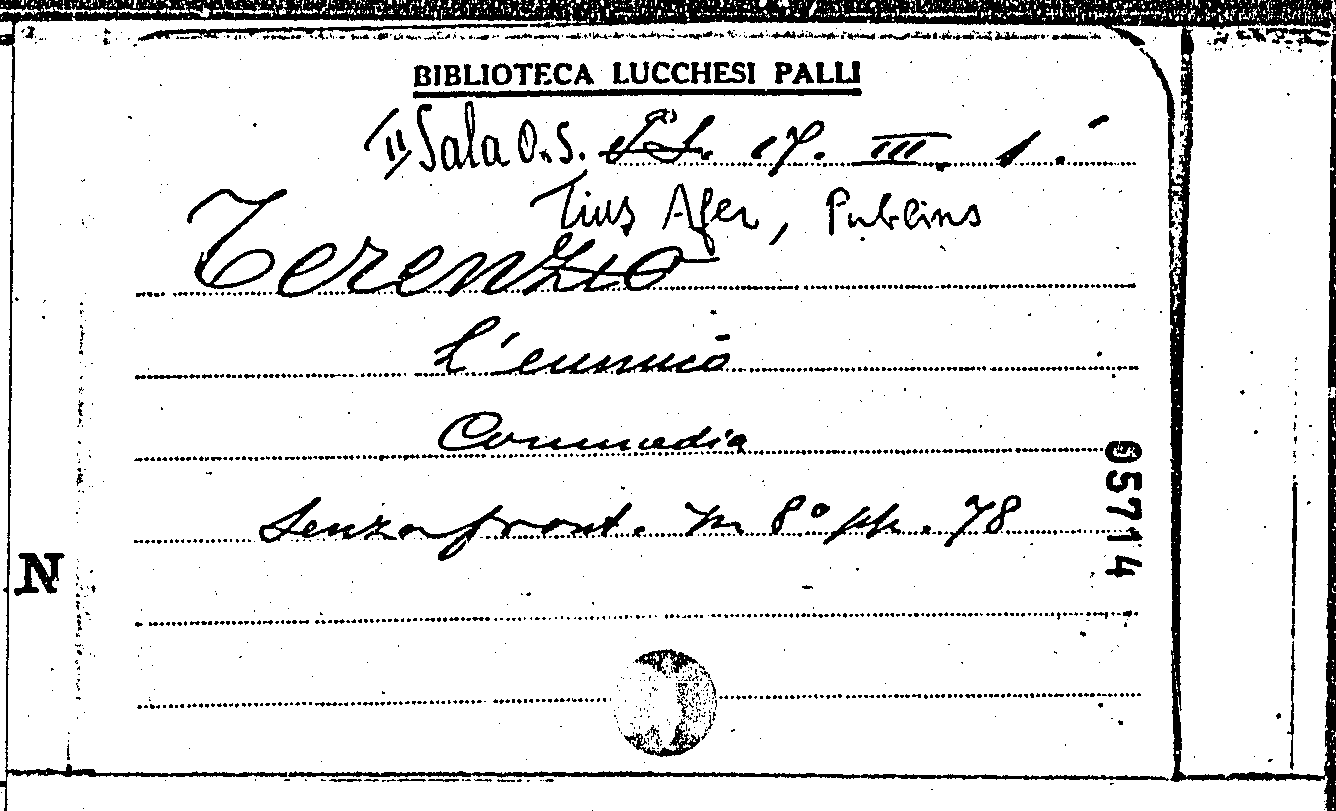 BIBLIOTECA LUCCHESI PALLI
II Sala O.S. 17. III. 1.
Tius Afer, Publius
Terenzio
L'eunuco
Commedia
Senza front. in 8° pp. 78
05714
N